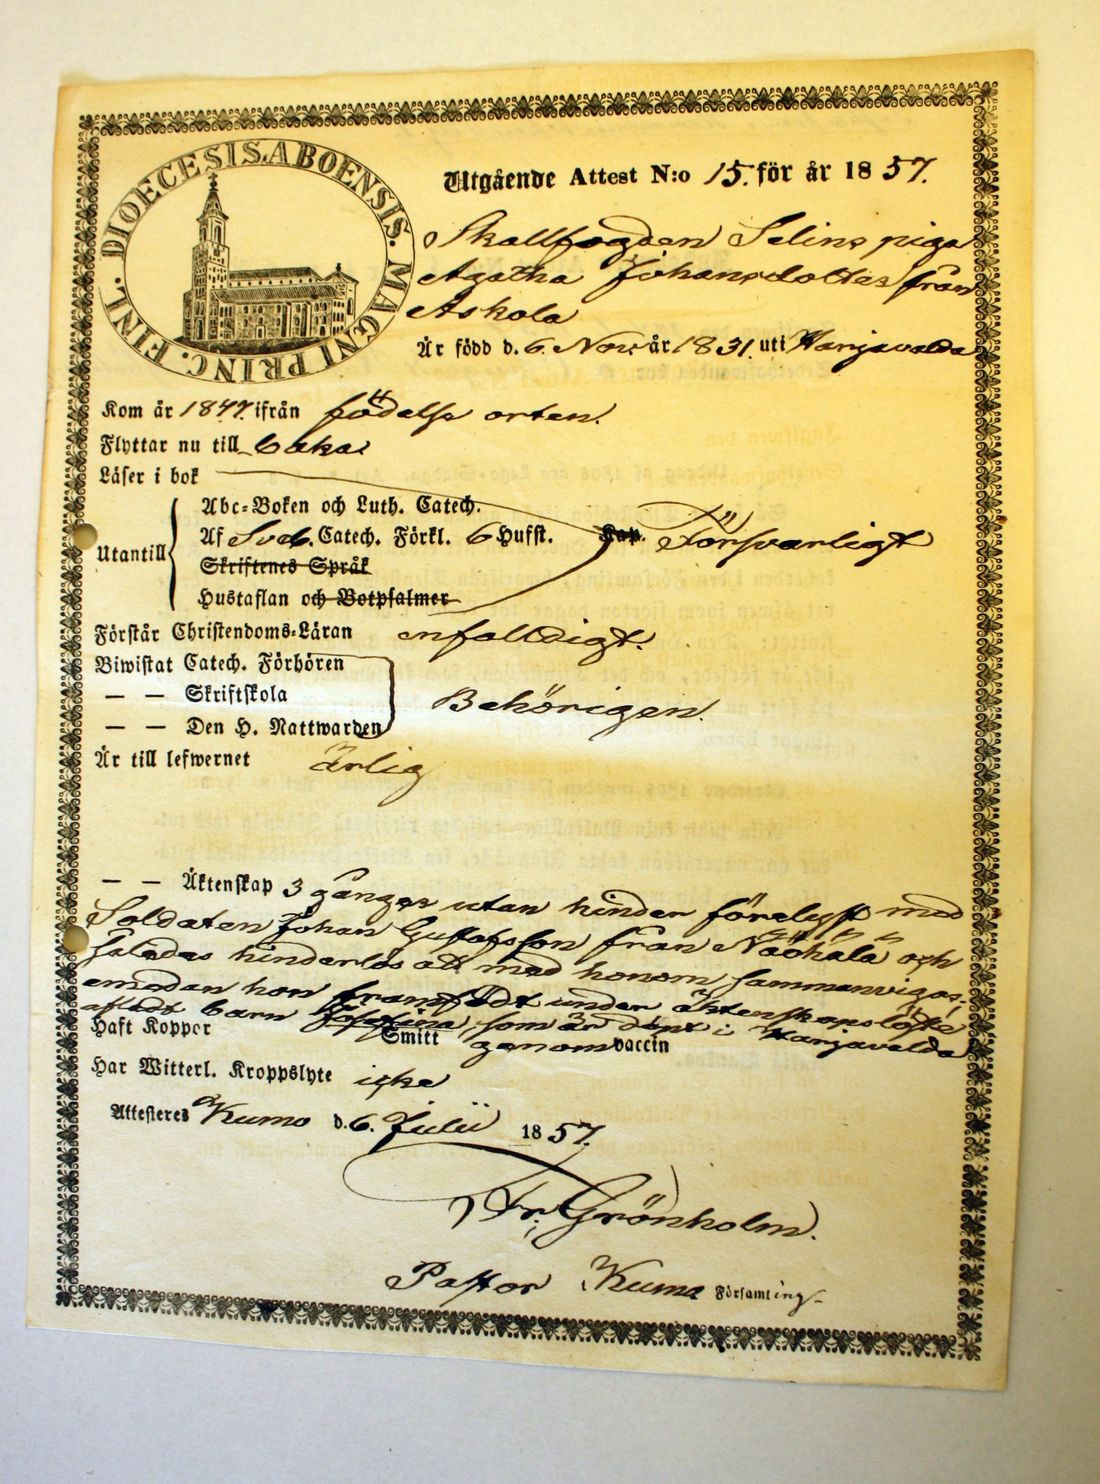 FINL. DIOECESIS. ABOENSIS. MAGNI PRINC.
Utgående Attest N:o 15. för år 1857.
Skallfogden Selins piga
Agatha Johansdotter från
Askola
Är född d. 6. Nov. år 1831. uti Harjavalda
Kom år 1847. ifrån födelse orten.
Flyttar nu till baka
Läser i bok
Abc-Boken och Luth. Catech.
Utantill Af Sveb. Catech. Förkl. 6 Hufst. Kap. Försvarligt
Skriftenes Språk
Hustaflan och Botpsalmer
Förstår Christendoms-Läran enfalldigt.
Biwistat Catech. Förhören
— — Skriftskola Behörigen.
— — Den H. Nattwarden
Är till lefwernet ärlig
— — Äktenskap 3 gånger utan hinder förelyst med
Soldaten Johan Gustafsson från och
således hinderlös att med honom sammanvigas,
emedan hon framfödt under äktenskapslöfte
afladt barn Josefina, som är döpt i Harjavalda
Haft Koppor Smitt genom vaccin
Har Witterl. Kroppslyte icke
Attesteres Kumo d. 6. Julii 1857.
Fr. Grönholm.
Pastor Kumo Församling